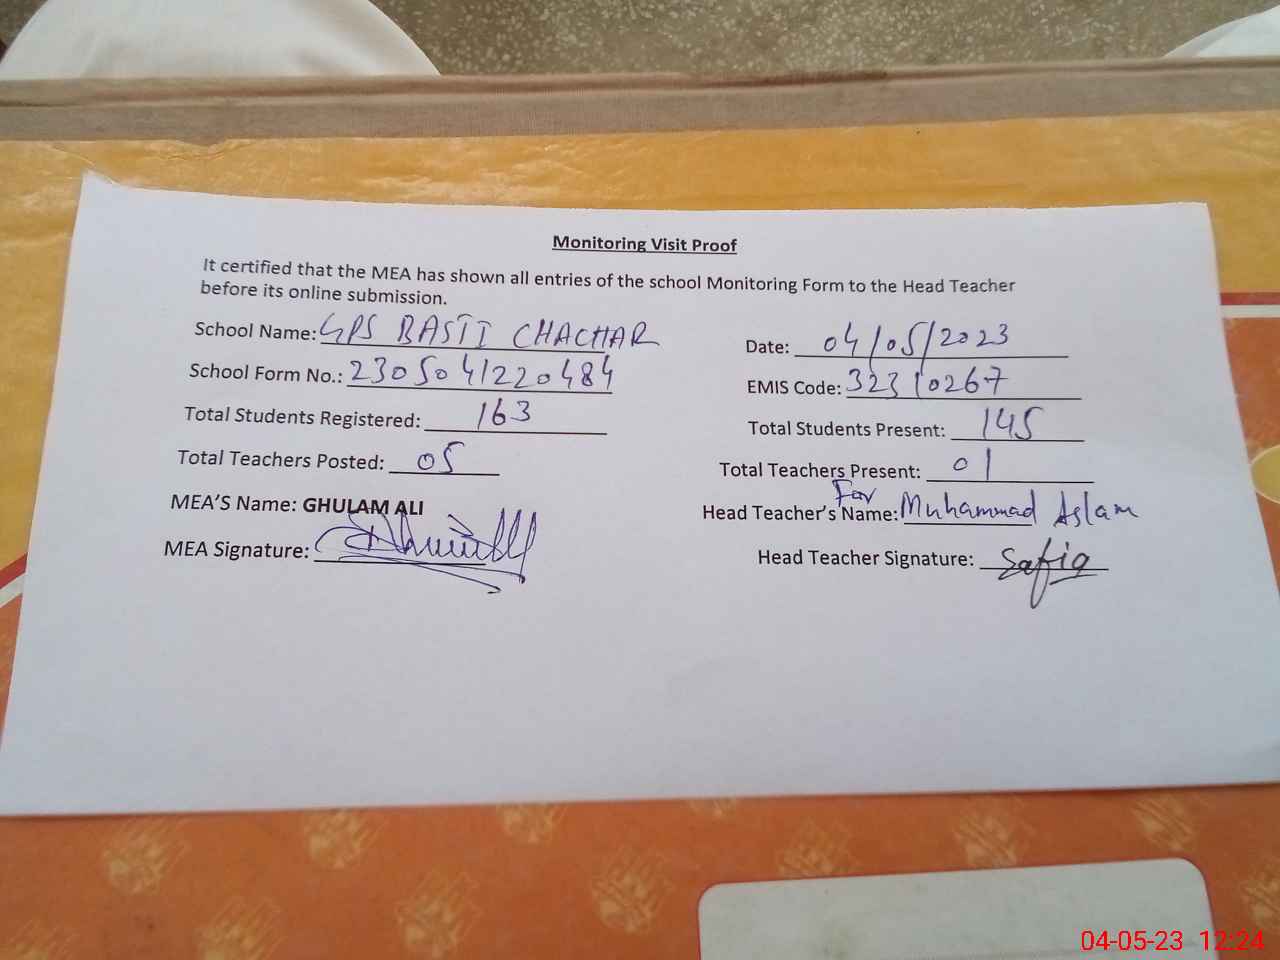 Monitoring Visit Proof
It certified that the MEA has shown all entries of the school Monitoring Form to the Head Teacher
before its online submission.
School Name: GPS BASTI CHACHAR
Date: 04/05/2023
School Form No.: 2305041220484
EMIS Code: 32310267
Total Students Registered: 163
Total Students Present: 145
Total Teachers Posted: 05
Total Teachers Present: 01
MEA'S Name: GHULAM ALI
For
Head Teacher's Name: Muhammad Aslam
MEA Signature:
Head Teacher Signature: Safiq
04-05-23 12:24